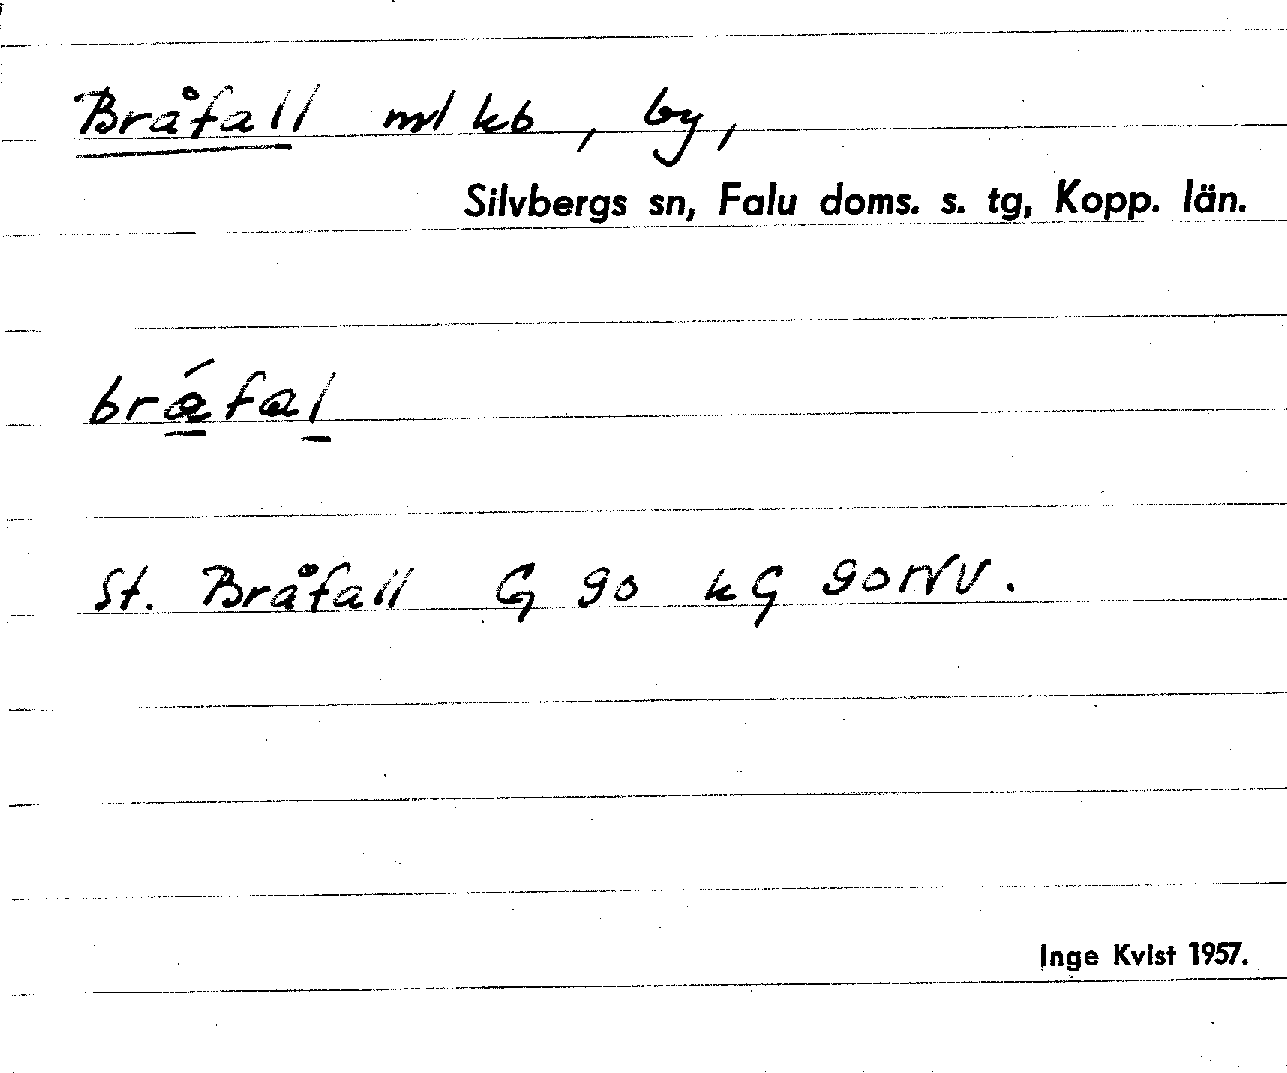 Bråfall ml kb, by,
Silvbergs sn, Falu doms. s. tg, Kopp. län.
bráfal
St. Bråfall G 90 kG 90NV.
Inge Kvist 1957.